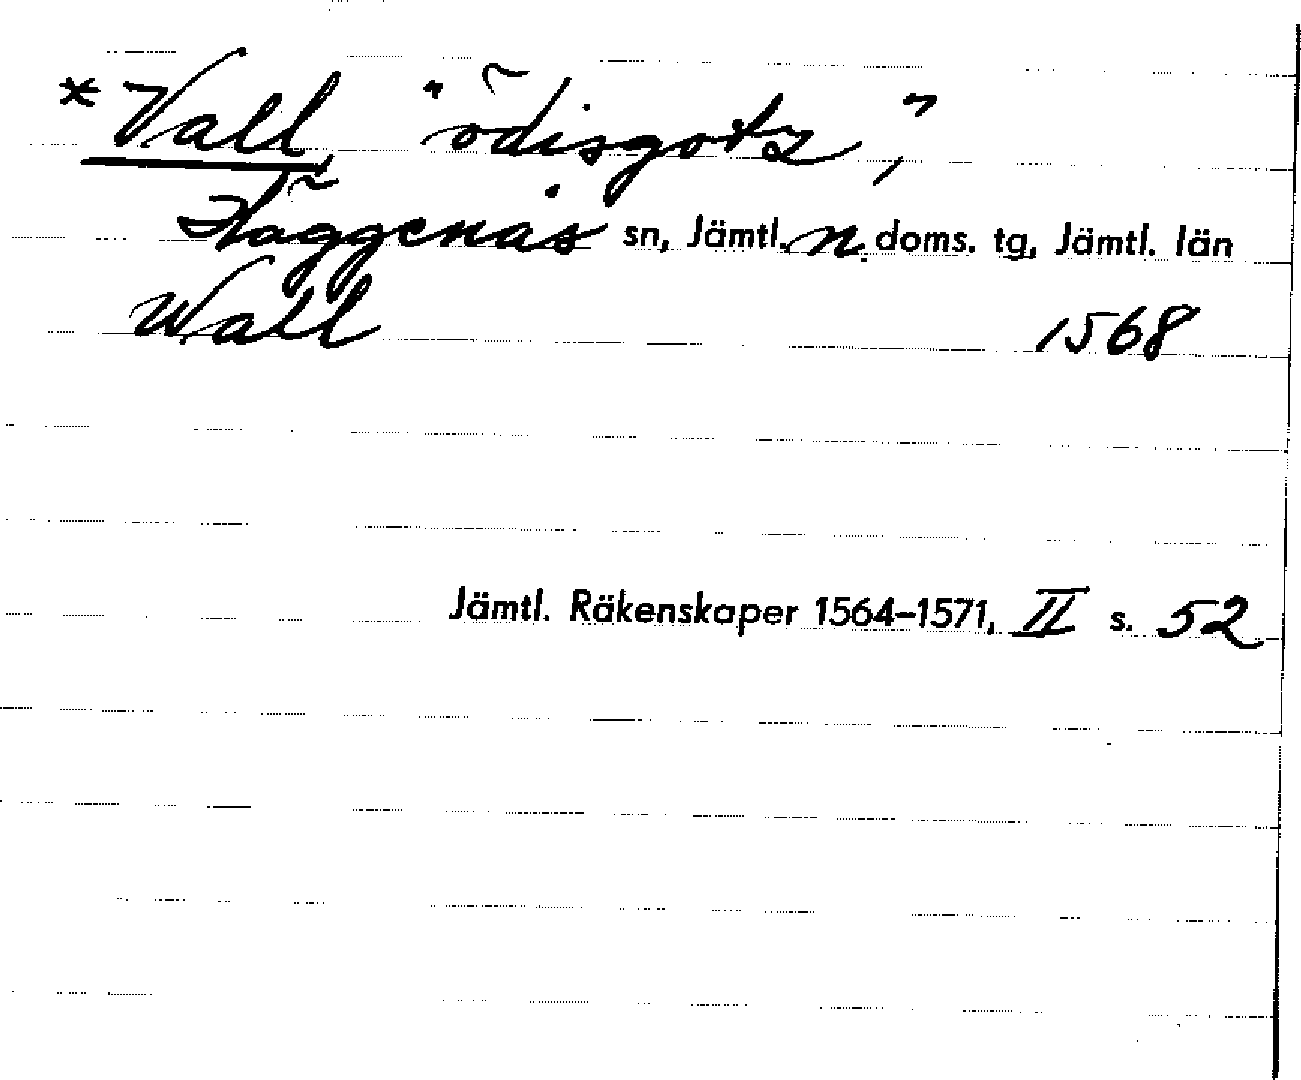 * Vall, "ödisgotz,"
Häggenås sn, Jämtl. n. doms. tg, Jämtl. län
Wall 1568
Jämtl. Räkenskaper 1564–1571, II s. 52